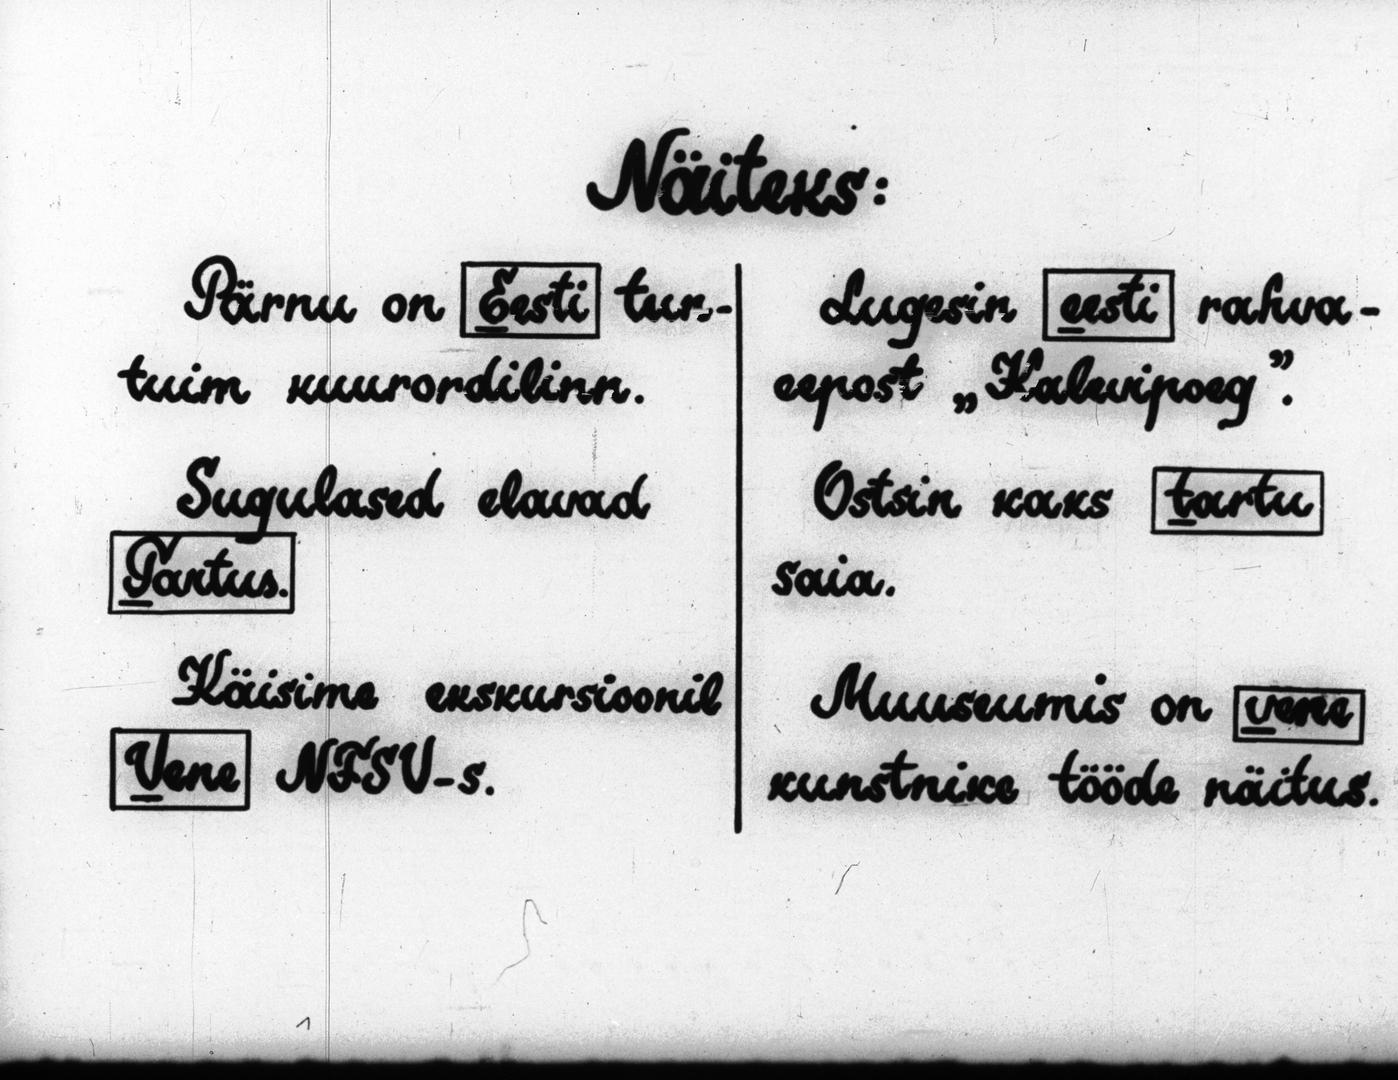 Näiteks:
Pärnu on Eesti tun-
tuim kuurordilinn.
Sugulased elavad
Tartus.
Käisime ekskursioonil
Vene NFSV-s.
Lugesin eesti rahva-
eepost „Kalevipoeg”.
Ostsin kaks tartu
saia.
Muuseumis on vene
kunstnike tööde näitus.